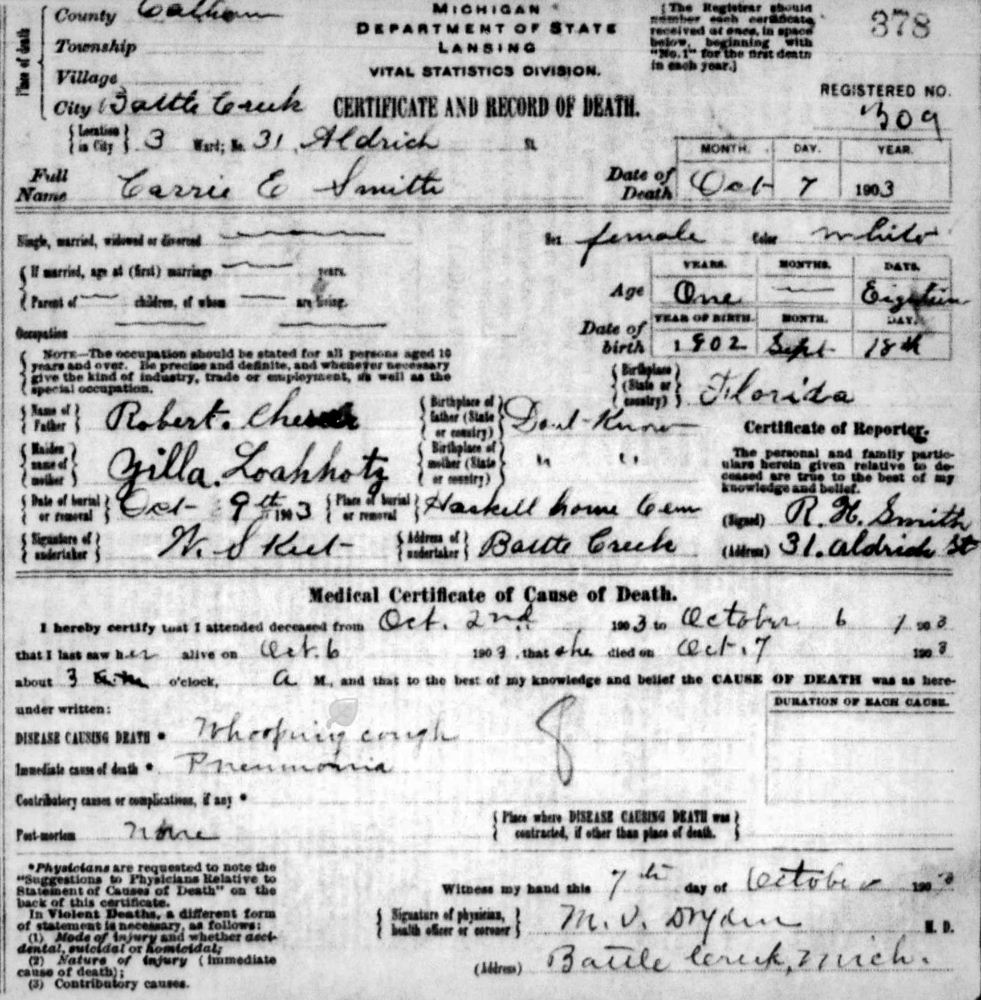 Place of death
County Calhoun
Township
Village
City Battle Creek
MICHIGAN
DEPARTMENT OF STATE
LANSING
VITAL STATISTICS DIVISION.
CERTIFICATE AND RECORD OF DEATH.
[The Registrar should
number each certificate
received at once, in space
below, beginning with
"No. 1" for the first death
in each year.]
378
REGISTERED NO.
309
{Location in City} 3 Ward; No. 31, Aldrich St.
Full Name Carrie E Smith
Date of Death MONTH. Oct DAY. 7 YEAR. 1903
Single, married, widowed or divorced
Sex female Color white
If married, age at (first) marriage years.
Parent of children, of whom are living.
Age YEARS. One MONTHS. DAYS. Eighteen
Occupation
Date of birth YEAR OF BIRTH. 1902 MONTH. Sept DAY. 18th
NOTE—The occupation should be stated for all persons aged 10
years and over. Be precise and definite, and whenever necessary
give the kind of industry, trade or employment, as well as the
special occupation.
Birthplace (State or country) Florida
Name of Father Robert.
Birthplace of father (State or country) Dont Know
Maiden name of mother Zilla.
Birthplace of mother (State or country) " "
Certificate of Reporter.
The personal and family partic-
ulars herein given relative to de-
ceased are true to the best of my
knowledge and belief.
(Signed) R. H. Smith
(Address) 31. Aldrich St
Date of burial or removal Oct 9th 1903
Place of burial or removal Haskell home Cem
Signature of undertaker W. S Keet
Address of undertaker Battle Creek
Medical Certificate of Cause of Death.
I hereby certify that I attended deceased from Oct. 2nd 1903 to October 6 1903
that I last saw her alive on Oct. 6 1903, that she died on Oct. 7 1903
about 3 o'clock, A M., and that to the best of my knowledge and belief the CAUSE OF DEATH was as here-
under written:
DURATION OF EACH CAUSE.
DISEASE CAUSING DEATH * Whooping cough
Immediate cause of death * Pneumonia
8
Contributory causes or complications, if any *
Post-mortem none
{Place where DISEASE CAUSING DEATH was
contracted, if other than place of death.}
*Physicians are requested to note the
"Suggestions to Physicians Relative to
Statement of Causes of Death" on the
back of this certificate.
In Violent Deaths, a different form
of statement is necessary, as follows:
(1) Mode of injury and whether acci-
dental, suicidal or homicidal;
(2) Nature of injury (immediate
cause of death);
(3) Contributory causes.
Witness my hand this 7th day of October 1903
Signature of physician, health officer or coroner M. V. Dryden M. D.
(Address) Battle Creek, Mich.